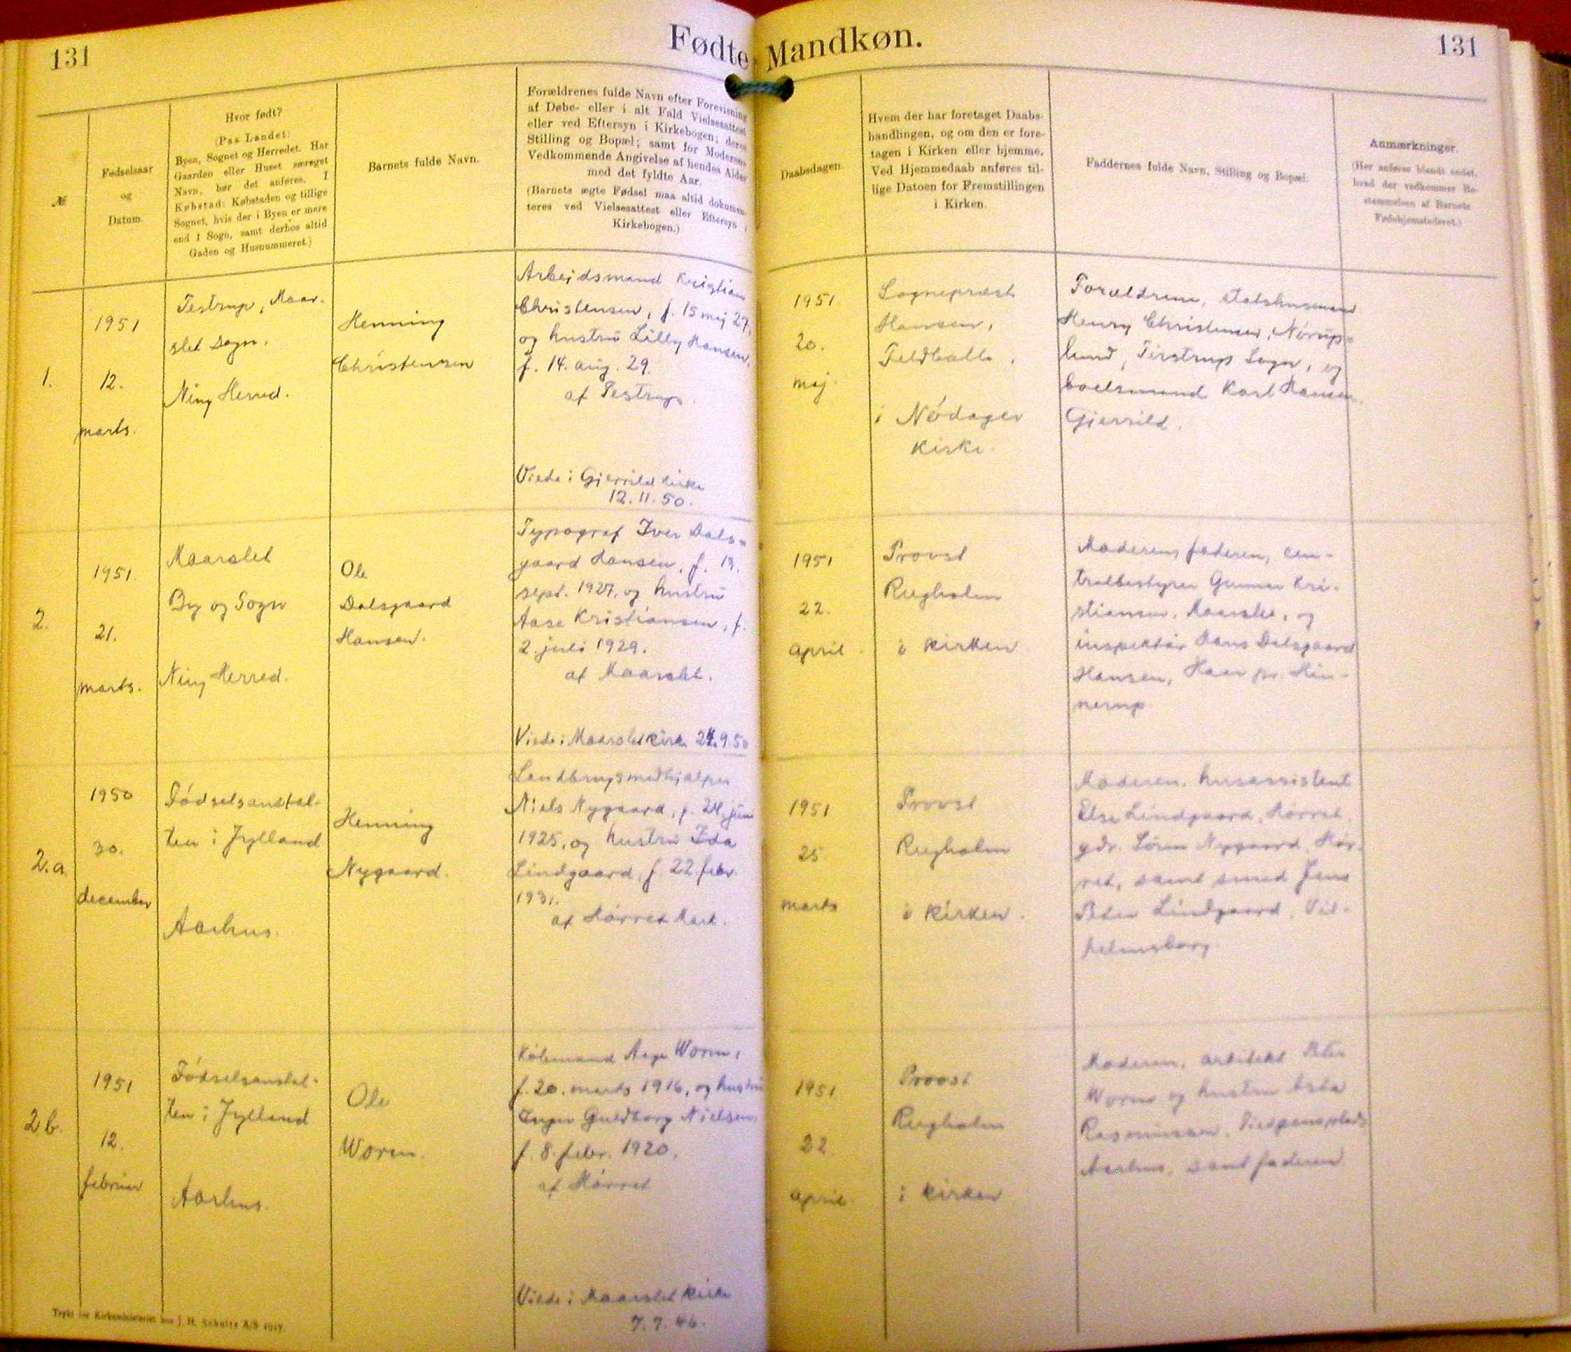 131
Fødte Mandkøn.
131
№
Fødselsaar
og
Datum.
Hvor født?
(Paa Landet:
Byen, Sognet og Herredet. Har
Gaarden eller Huset særeget
Navn, bør det anføres. I
Købstad: Købstaden og tillige
Sognet, hvis der i Byen er mere
end 1 Sogn, samt derhos altid
Gaden og Husnummeret.)
Barnets fulde Navn.
Forældrenes fulde Navn efter Forevisning
af Døbe- eller i alt Fald Vielsesattest
eller ved Eftersyn i Kirkebogen; deres
Stilling og Bopæl; samt for Moderens
Vedkommende Angivelse af hendes Alder
med det fyldte Aar.
(Barnets ægte Fødsel maa altid dokumen-
teres ved Vielsesattest eller Eftersyn i
Kirkebogen.)
Daabsdagen.
Hvem der har foretaget Daabs-
handlingen, og om den er fore-
tagen i Kirken eller hjemme.
Ved Hjemmedaab anføres til-
lige Datoen for Fremstillingen
i Kirken.
Faddernes fulde Navn, Stilling og Bopæl.
Anmærkninger.
(Her anføres blandt andet,
hvad der vedkommer Be-
stemmelsen af Barnets
Fødehjemstederet.)
1.
1951
12.
marts.
Testrup, Maar-
slet Sogn.
Ning Herred.
Henning
Christensen
Arbejdsmand Kristian
Christensen, f. 15 maj 27,
og hustru Lilly Hansen,
f. 14. aug. 29.
af Testrup.
Viede i Gjerrild kirke
12.11.50.
1951
20.
maj.
Sognepræst
Hansen,
Feldballe,
i Nødager
kirke.
Forældrene, statshusmand
Henry Christensen, Nørup-
lund, Tirstrup Sogn, og
boelsmand Karl Hansen,
Gjerrild.
2.
1951
21.
marts.
Maarslet
By og Sogn
Ning Herred.
Ole
Dalsgaard
Hansen.
Typograf Iver Dals-
gaard Hansen, f. 13.
sept. 1927, og hustru
Aase Kristiansen, f.
2. juli 1929.
af Maarslet.
Viede i Maarslet kirke 24.9.50
1951
22.
april.
Provst
Rugholm
i kirken
Moderen, faderen, cen-
tralbestyrer Gunnar Kri-
stiansen, Maarslet, og
inspektør Hans Dalsgaard
Hansen, Haar pr. Hin-
nerup
2.a.
1950
30.
december
Fødselsanstal-
ten i Jylland
Aarhus.
Henning
Nygaard.
Landbrugsmedhjælper
Niels Nygaard, f. 24. juni
1925, og hustru Ida
Lindgaard, f. 22 febr.
1931.
af Hørret Mark.
1951
25
marts
Provst
Rugholm
i kirken.
Moderen, husassistent
Else Lindgaard, Hørret,
gdr. Søren Nygaard, Hør-
ret, samt smed Jens
Peter Lindgaard, Vil-
helmsborg.
2b.
1951
12.
februar
Fødselsanstal-
ten i Jylland
Aarhus.
Ole
Worm.
Købmand Aage Worm,
f. 20. marts 1916, og hustru
Inger Guldborg Nielsen,
f. 8. febr. 1920.
af Hørret
Viede i Maarslet kirke
7.7.46.
1951
22.
april.
Provst
Rugholm
i kirken
Moderen, arkitekt Peter
Worm og hustru Asta
Rasmussen,
Aarhus, samt faderen
Trykt for Kirkeministeriet hos J. H. Schultz A/S